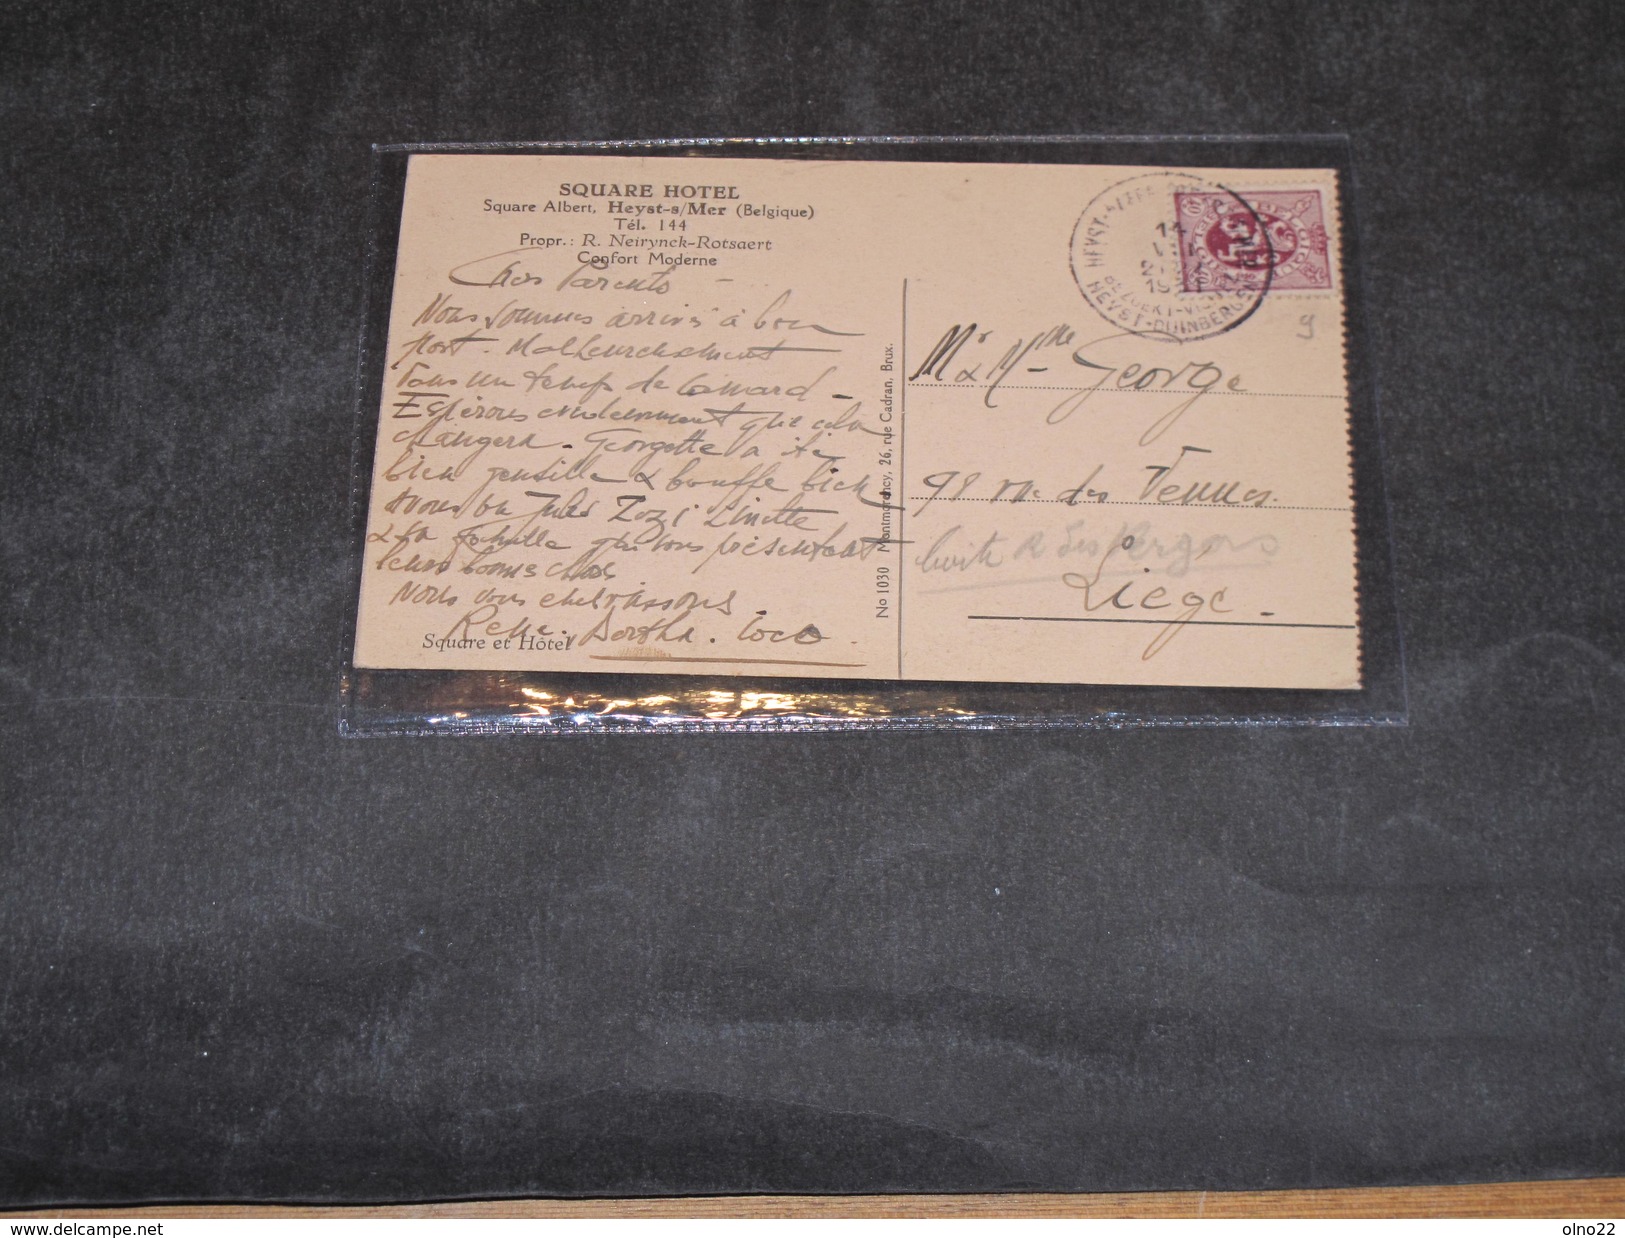 SQUARE HOTEL
Square Albert, Heyst-s/Mer (Belgique)
Tél. 144
Propr.: R. Neirynck-Rotsaert
Confort Moderne
Chers Parents
Nous sommes arrivés à bon
port. Malheureusement
un temps de canard -
Espérons que cela
changera - Georgette a été
bien gentille & bouffe bien
avons vu Jules Zozi Linette
& sa qui vous présentent
leurs bonnes choses
Nous vous embrassons.
René. Bertha. Coco
Square et Hôtel
No 1030 Montmorency, 26, rue Cadran, Brux.
HEYST
14
19
HEYST-DUINBERGEN
9
Mr & Mme George
98 rue des Vennes
Liège
delcampe.net
olno22